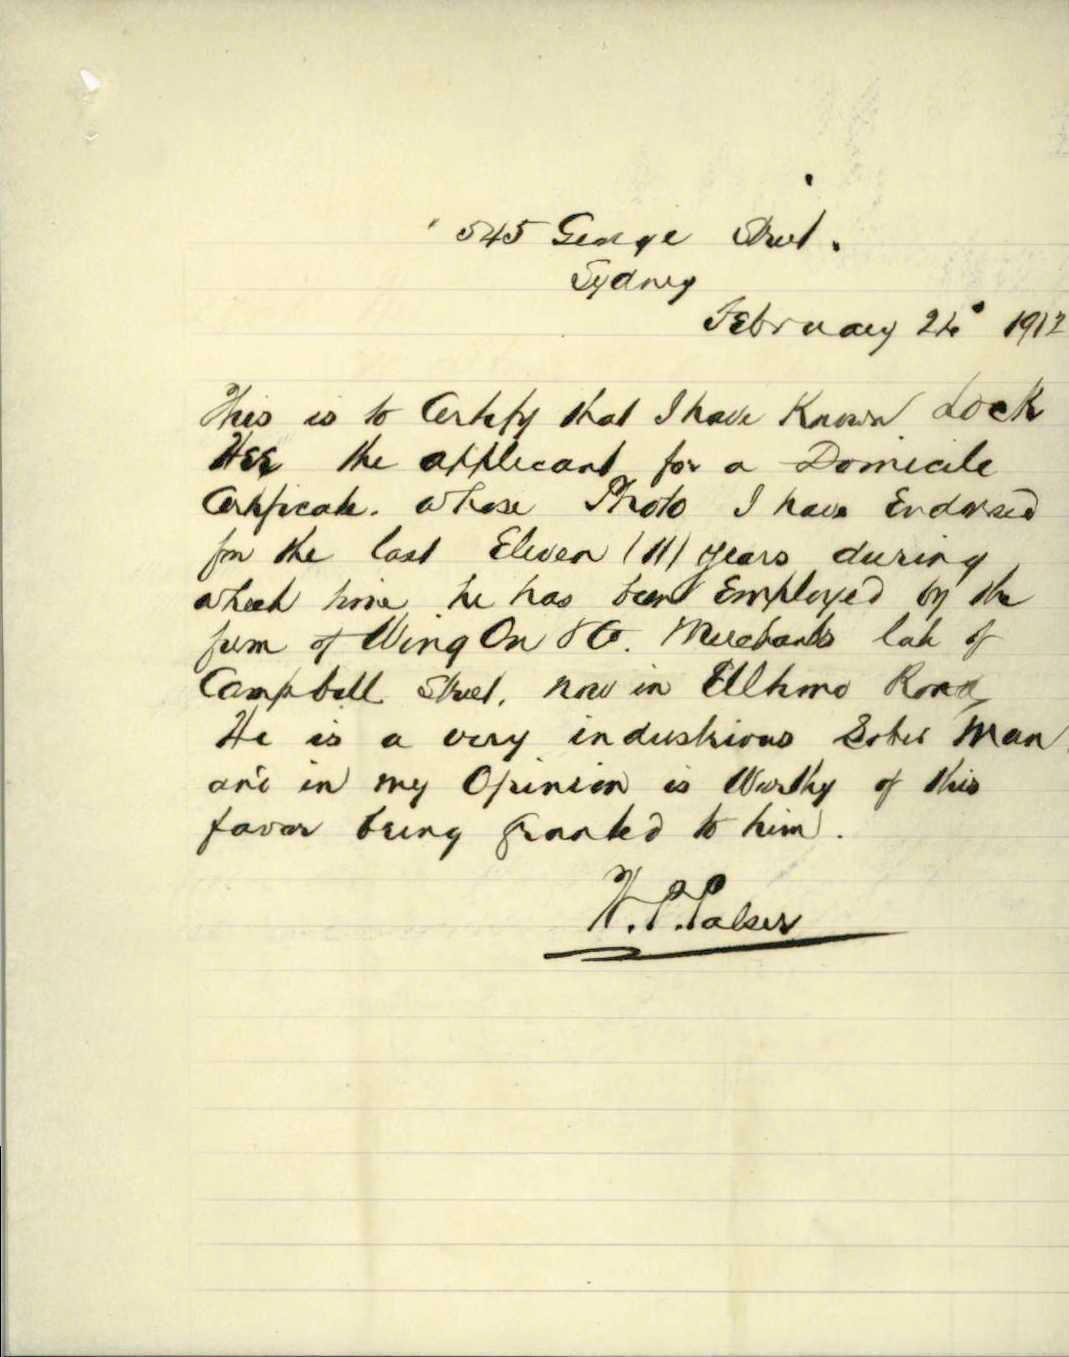 545 George Street.
Sydney
February 24 1912
This is to Certify that I have Known Lock
Hee the applicant for a Domicile
Certificate. whose Photo I have Endorsed
for the last Eleven (11) years during
which time he has been Employed by the
firm of Wing On & Co. Merchants late of
Campbell Street, now in Ultimo Road,
He is a very industrious Sober Man
and in my Opinion is Worthy of this
favor being granted to him.
W. P. Palser